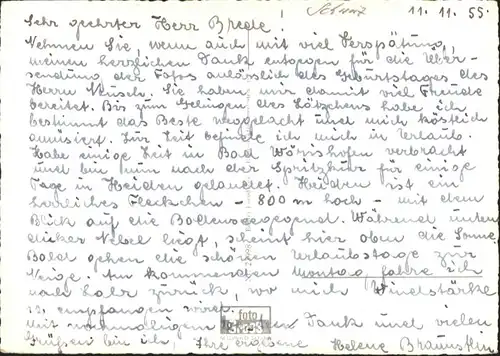 Schwz 11. 11. 55.
Sehr geehrter Herr Brede!
Nehmen Sie, wenn auch mit viel Verspätung,
meinen herzlichen Dank entgegen für die Über-
sendung der Fotos anlässlich des Geburtstages des
Herrn. Sie haben mir damit viel Freude
bereitet. Bis zum Gelingen des habe ich
bestimmt das Beste und mich köstlich
amüsiert. Zur Zeit befinde ich mich in Urlaub.
Habe einige Zeit in Bad Wörishofen verbracht
und bin nun nach der Spritzkur für einige
Tage in Heiden gelandet. Heiden ist ein
herrliches Fleckchen - 800 m hoch - mit dem
Blick auf die Bodenseegegend. Während unten
dicker Nebel liegt, scheint hier oben die Sonne.
Bald gehen die schönen Urlaubstage zur
Neige. Am kommenden Montag fahre ich
nach zurück, wo mich Windstärke
12 empfangen wird.
Mit nochmaligem Dank und vielen
Grüßen bin ich, Ihre ergebene Helene Braunstein
foto